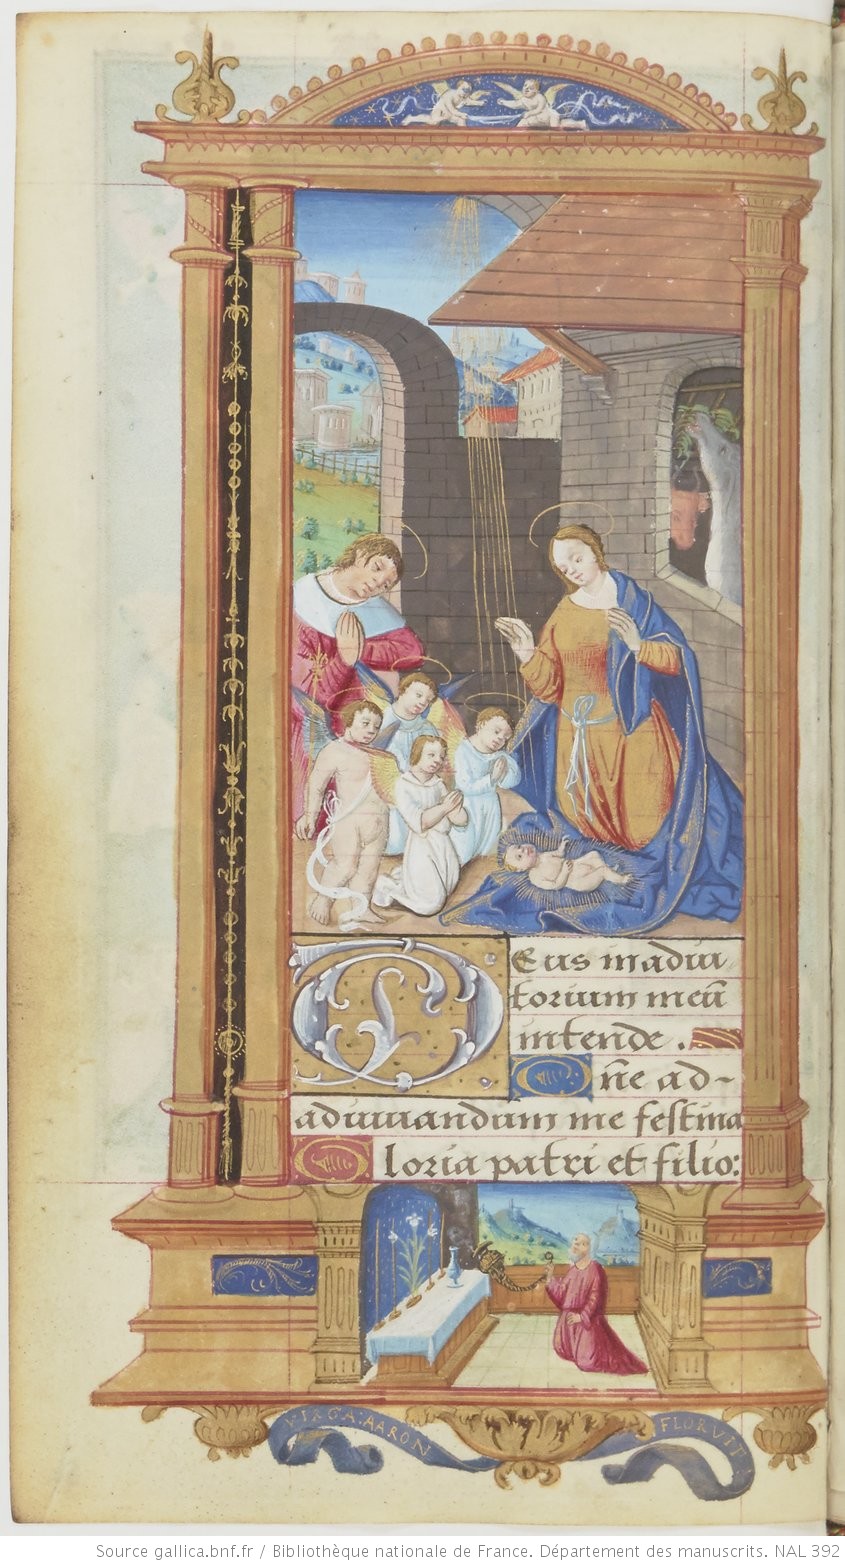 Deus in adiu
torium meū
intende.
Dñe ad-
adiuuandum me festina
Gloria patri et filio:
VIRGA: AARON FLORVIT
Source gallica.bnf.fr / Bibliothèque nationale de France. Département des manuscrits. NAL 392